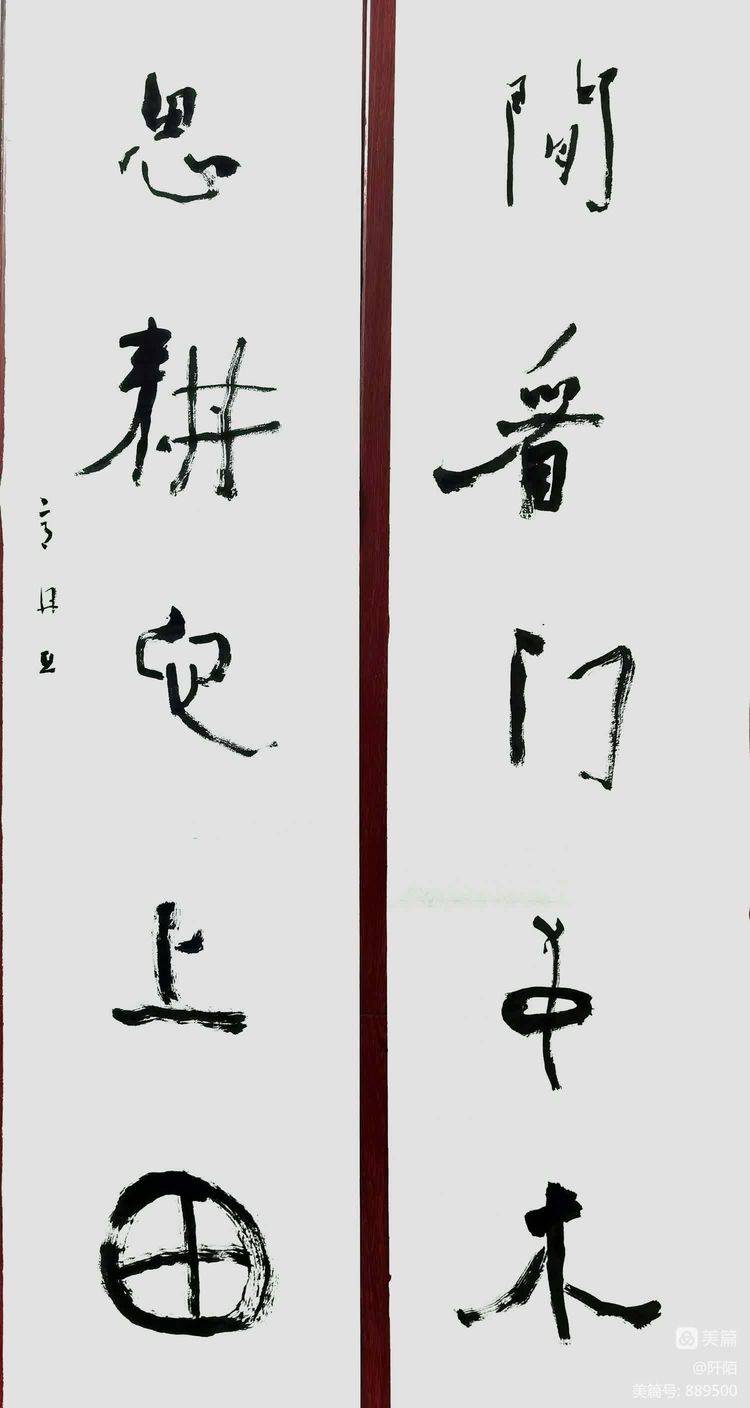 閒看门中木
思耕心上田
美篇
@阡陌
美篇号: 889500